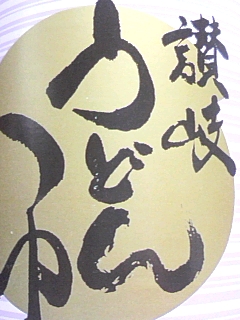 讃岐
うどん
つゆ